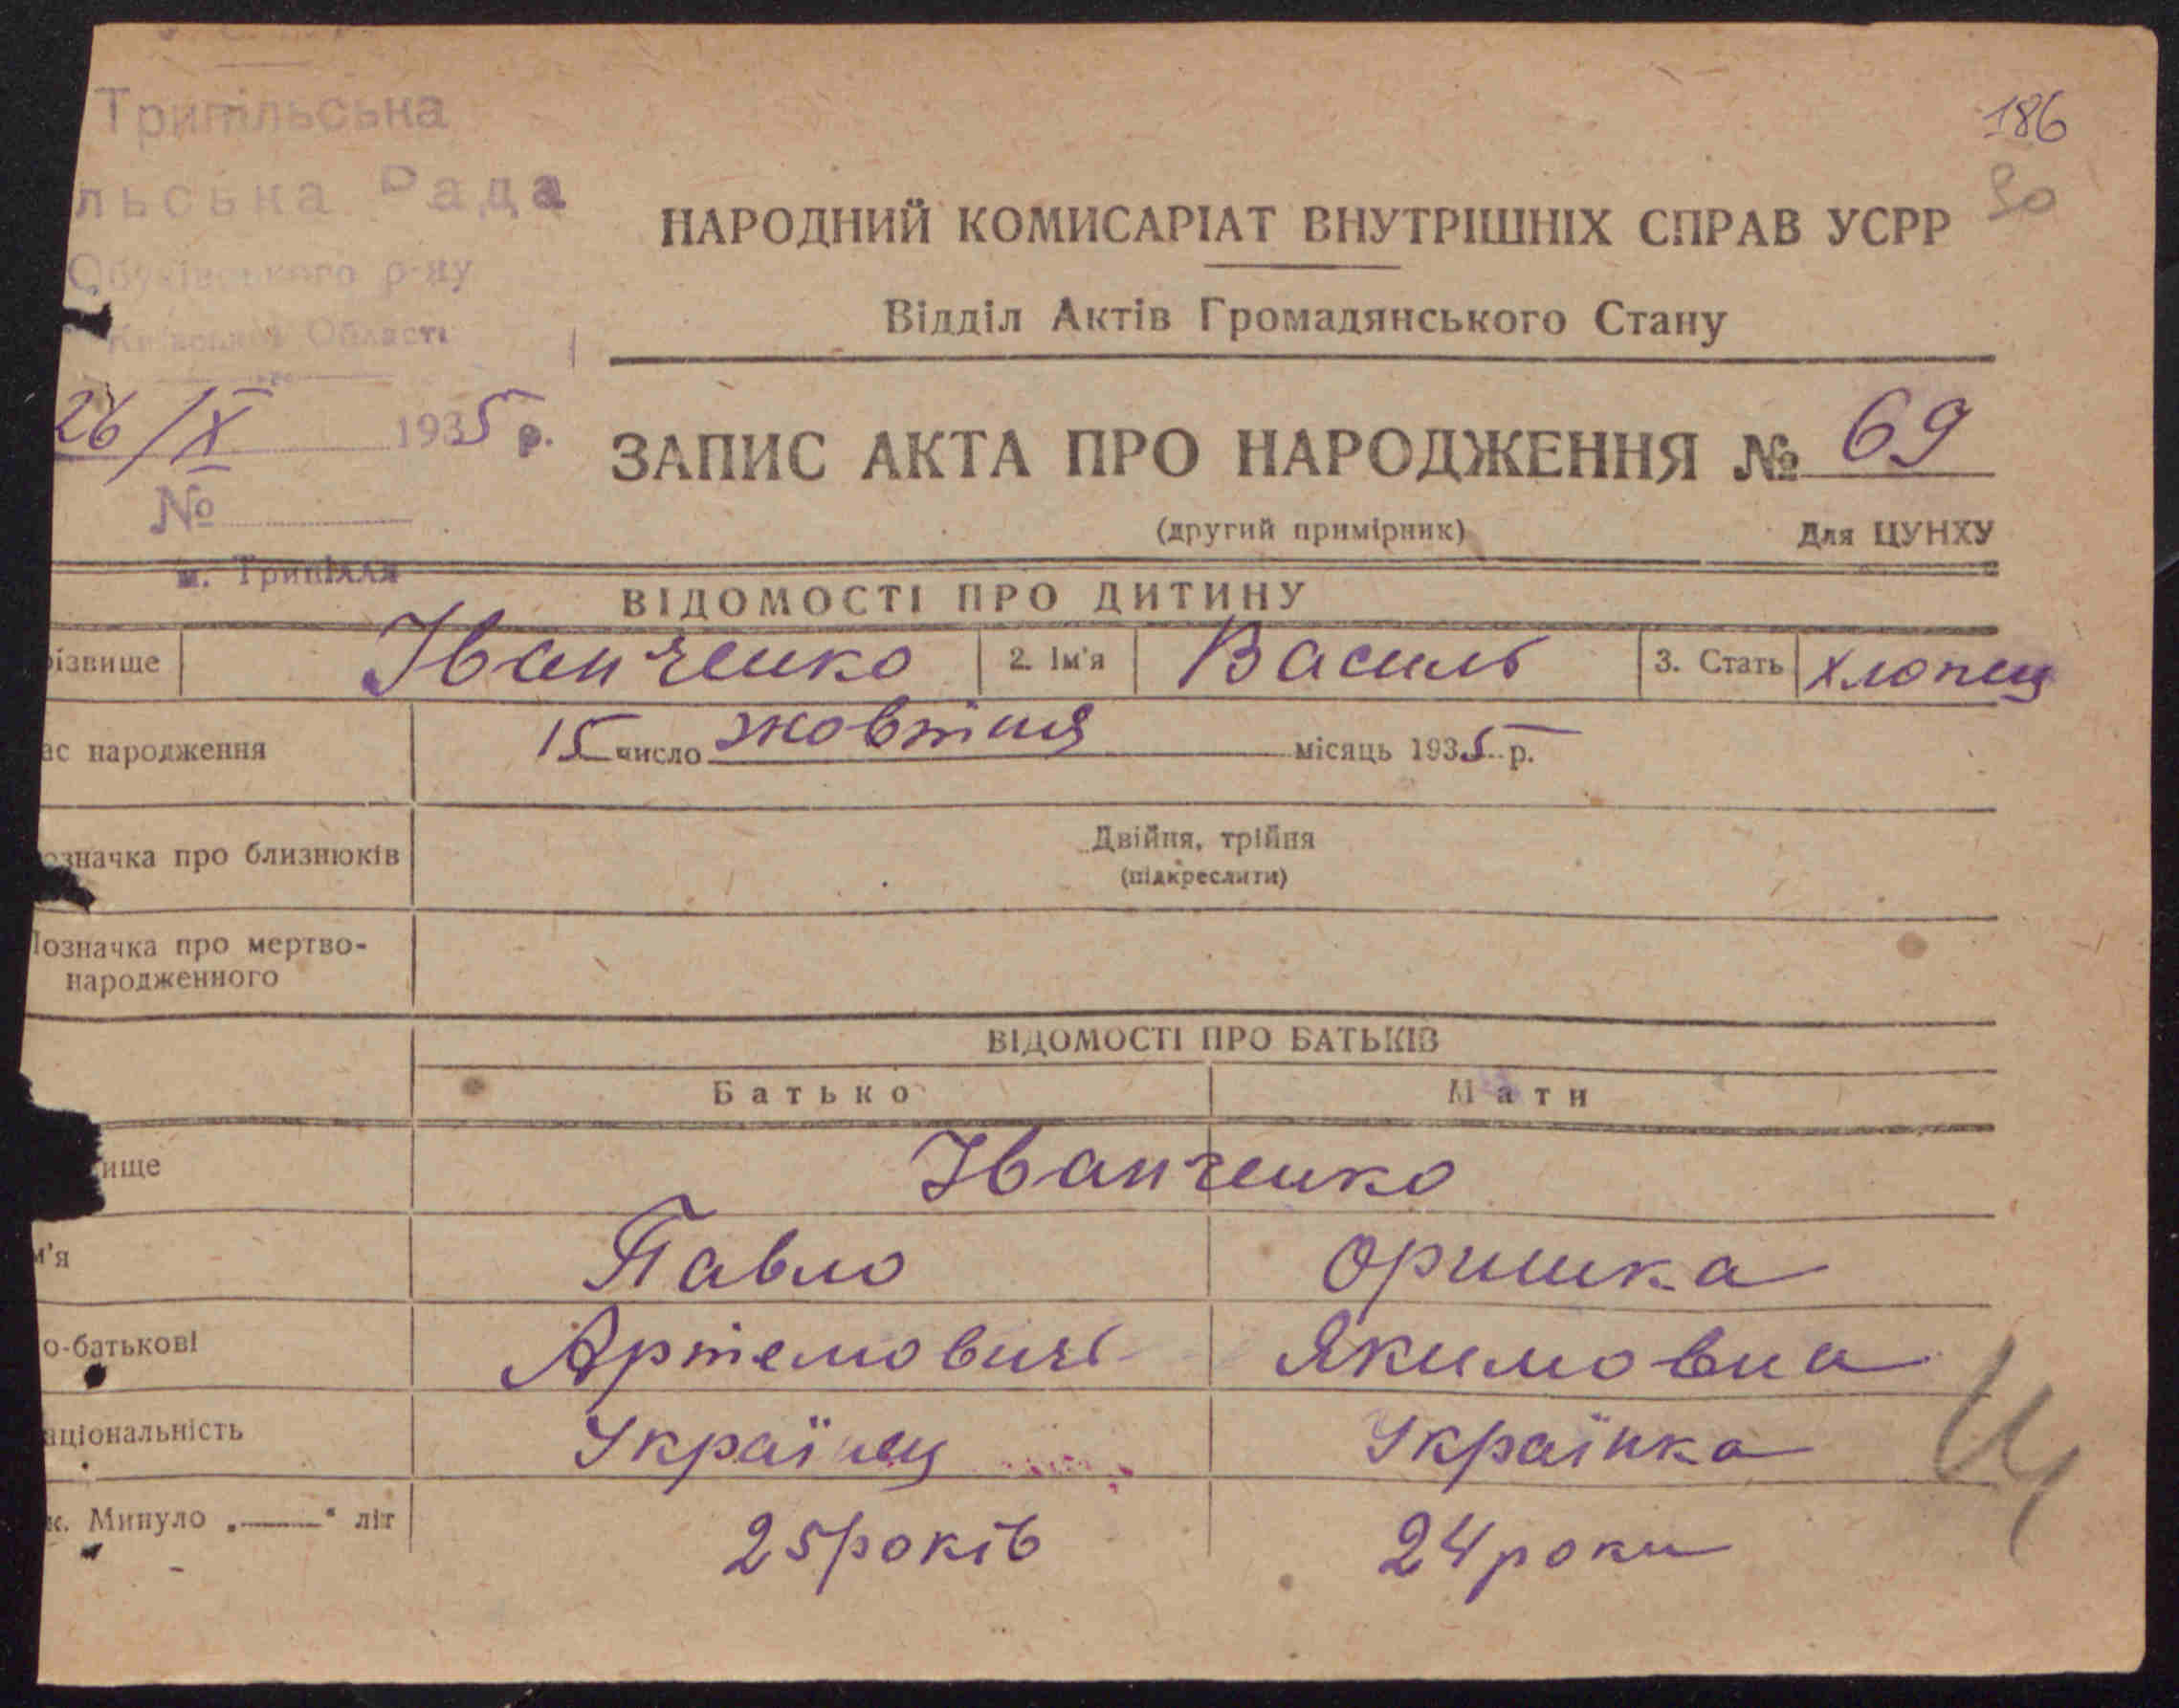 Трипільська
льська Рада
Обухівського р-ну
Київської Області
26/X 1935 р.
№
м. Трипілля
186
90
НАРОДНИЙ КОМИСАРІАТ ВНУТРІШНІХ СПРАВ УСРР
Відділ Актів Громадянського Стану
ЗАПИС АКТА ПРО НАРОДЖЕННЯ № 69
(другий примірник) Для ЦУНХУ
ВІДОМОСТІ ПРО ДИТИНУ
різвище Іванченко 2. Ім'я Василь 3. Стать хлопец
ас народження 15 число жовтіня місяць 1935 р.
означка про близнюків Двійня, трійня
(підкреслити)
Позначка про мертво-
народженного
ВІДОМОСТІ ПРО БАТЬКІВ
Батько Мати
ище Іванченко
м'я Павло Оришка
о-батькові Артемовичі Якимовна
аціональність Українец Українка
к. Минуло „—" літ 25 років 24 роки
Ц